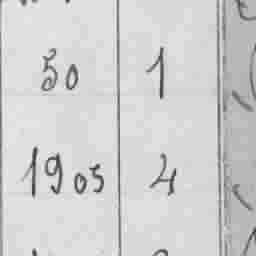 50 1
1905 4